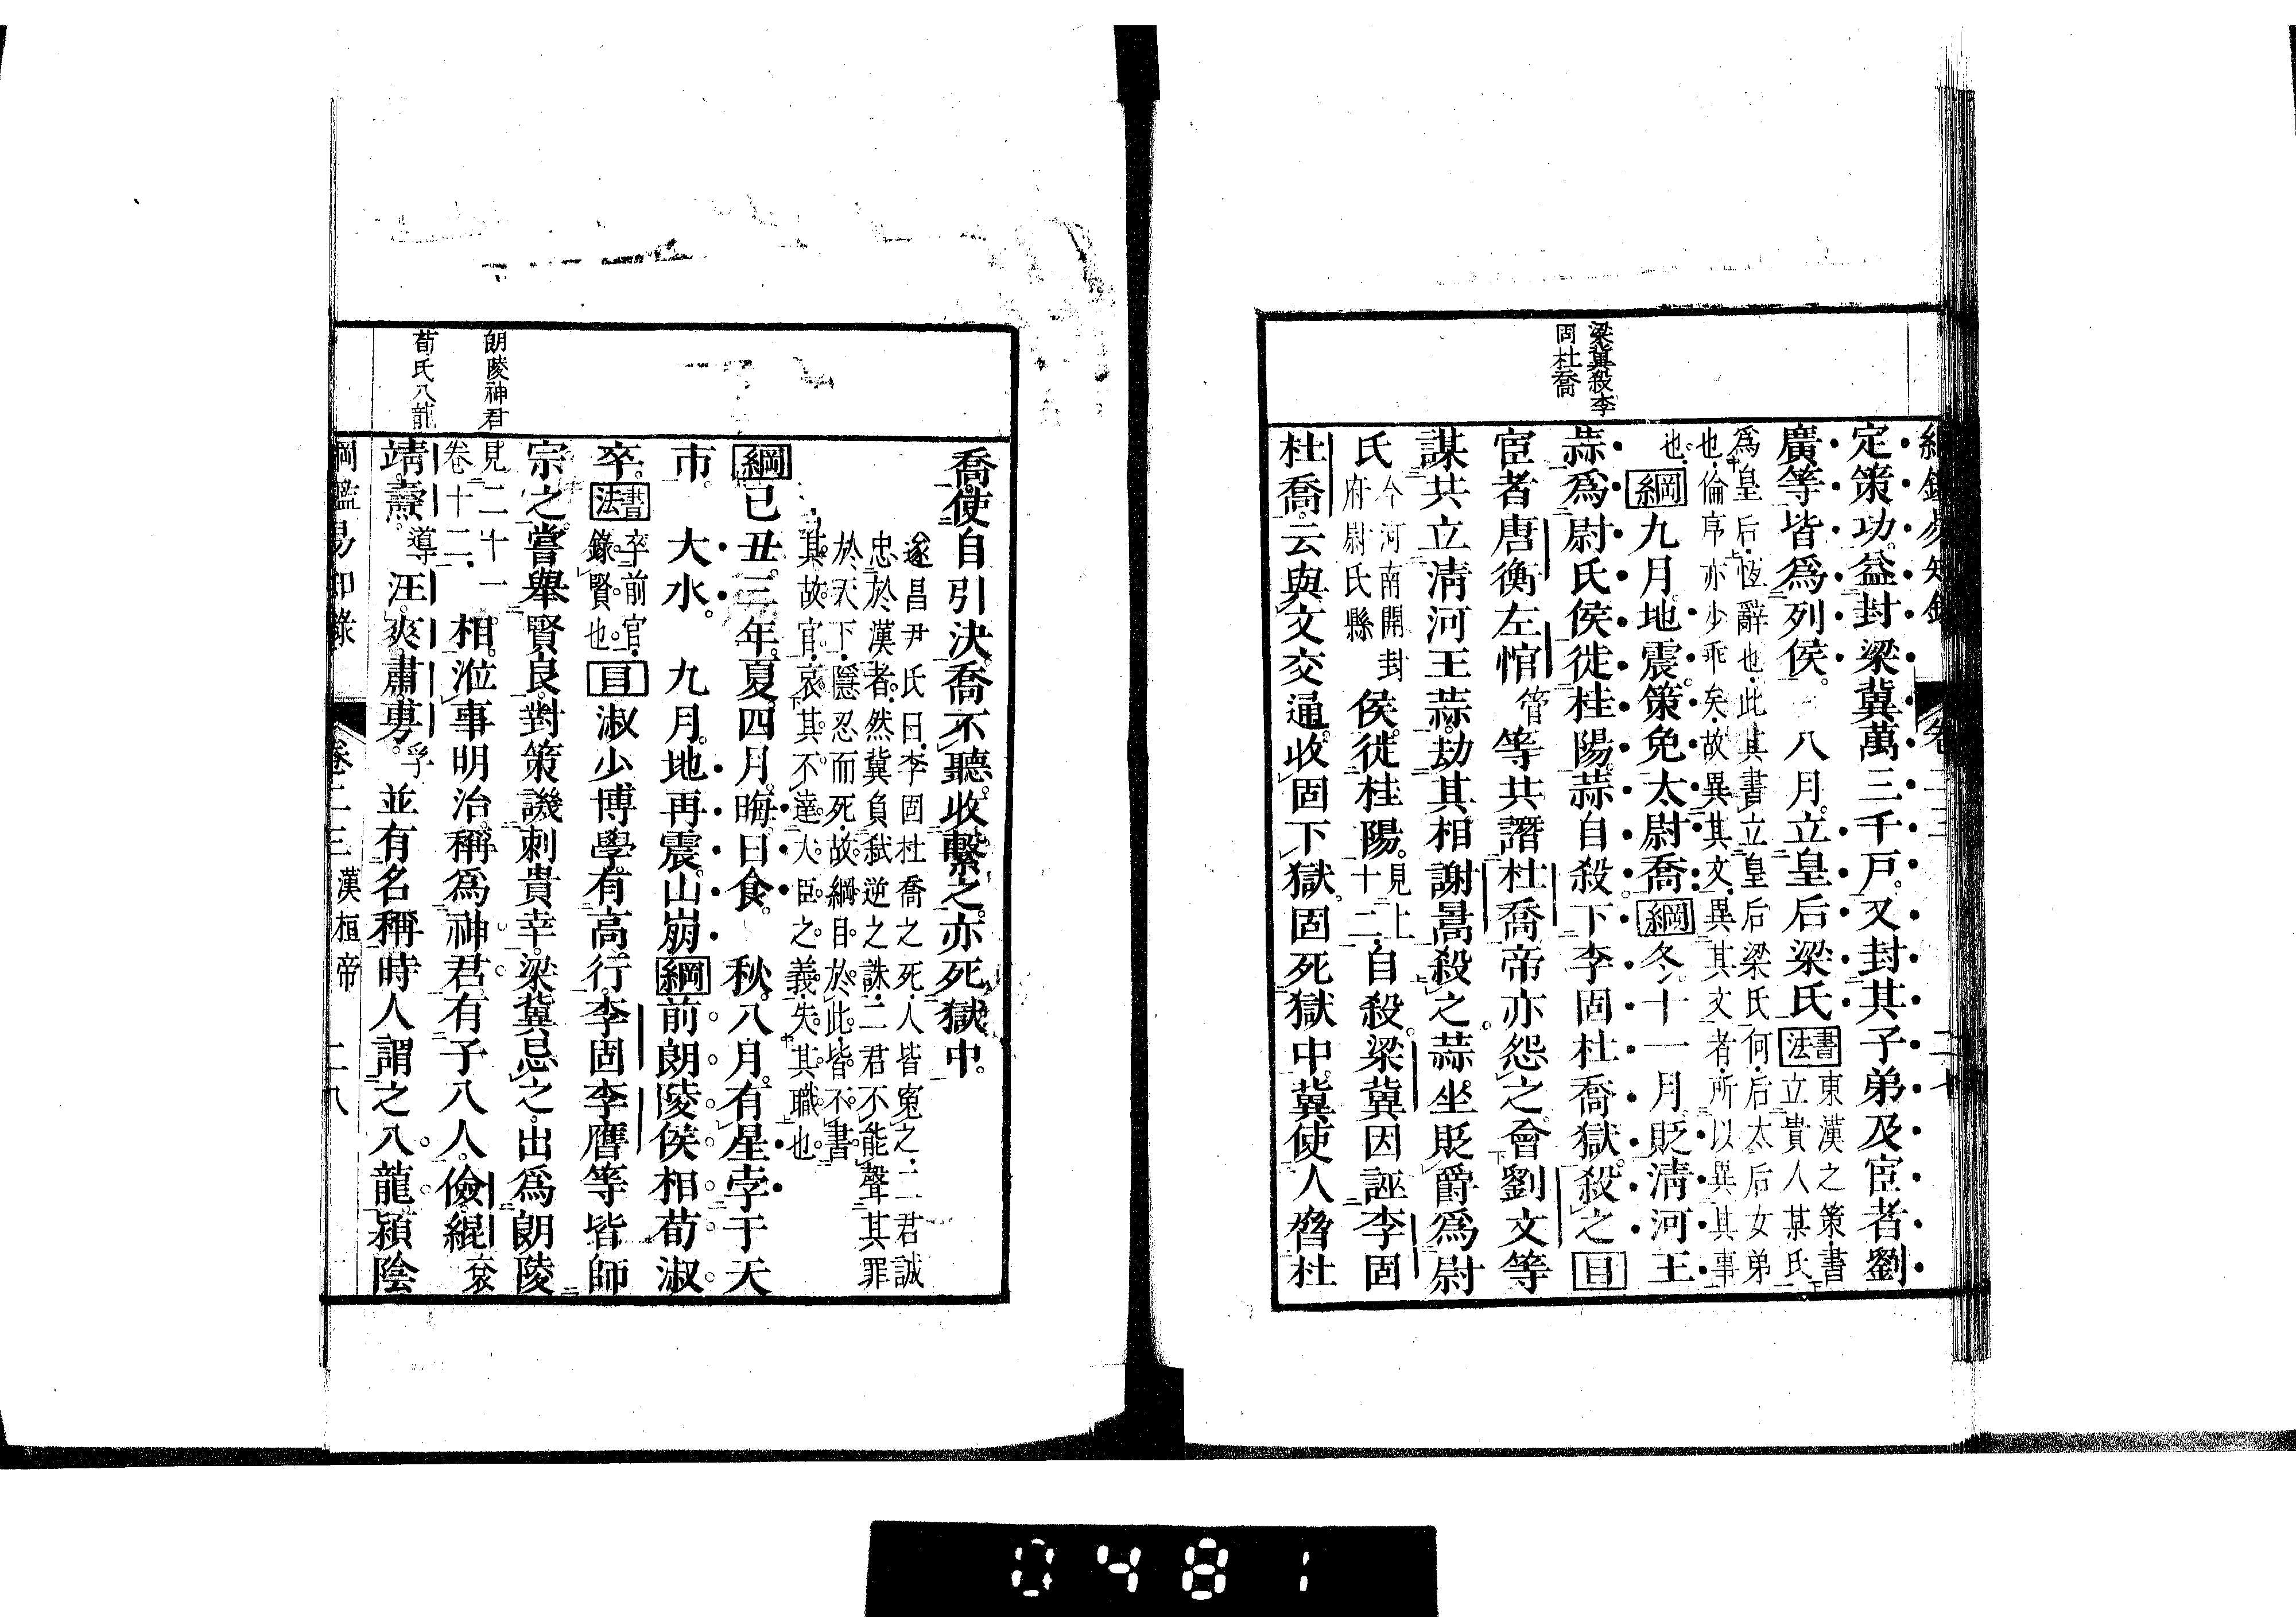 梁冀殺李
固杜喬
定策功。益封梁冀萬三千戸。又封其子弟及宦者劉
廣等皆爲列侯。　八月。立皇后梁氏書法東漢之策。書立貴人某氏
爲皇后。恆辭也。此其書立皇后梁氏何。后太后女弟
也。倫序亦少乖矣。故異其文。異其文者。所以異其事
也。綱九月。地震。策免太尉喬。綱冬。十一月。貶清河王
蒜爲尉氏侯。徙桂陽。蒜自殺。下李固杜喬獄。殺之目
宦者唐衡。左悺管等共譖杜喬。帝亦怨之。會劉文等
謀共立清河王蒜。劫其相謝暠殺之。蒜坐貶爵爲尉
氏今河南開封府尉氏縣侯。徙桂陽。見上十二。自殺。梁冀因誣李固
杜喬。云與文交通。收固下獄。固死獄中。冀使人脅杜
喬。使自引決。喬不聽。收繫之。亦死獄中。
遂昌尹氏曰。李固杜喬之死。人皆寃之。二君誠
忠於漢者。然冀負弑逆之誅。二君不能聲其罪
於天下。隱忍而死。故綱目於此。皆不書
其故官。哀其不達大臣之義。失其職也。
綱己丑。三年。夏。四月。晦。日食。　秋。八月。有星孛于天
市。　大水。　九月。地再震。山崩。綱前朗陵侯相荀淑
卒。書法卒前官。錄賢也。目淑少博學。有高行。李固李膺等皆師
宗之。嘗舉賢良。對策譏刺貴幸。梁冀忌之。出爲朗陵
見二十一卷十二。相。涖事明治。稱爲神君。有子八人。儉。緄袞
靖。燾。導汪。爽。肅。旉。孚並有名稱。時人謂之八龍。潁陰
朗陵神君
荀氏八龍
綱鑑易知錄　卷二三　漢桓帝　二八